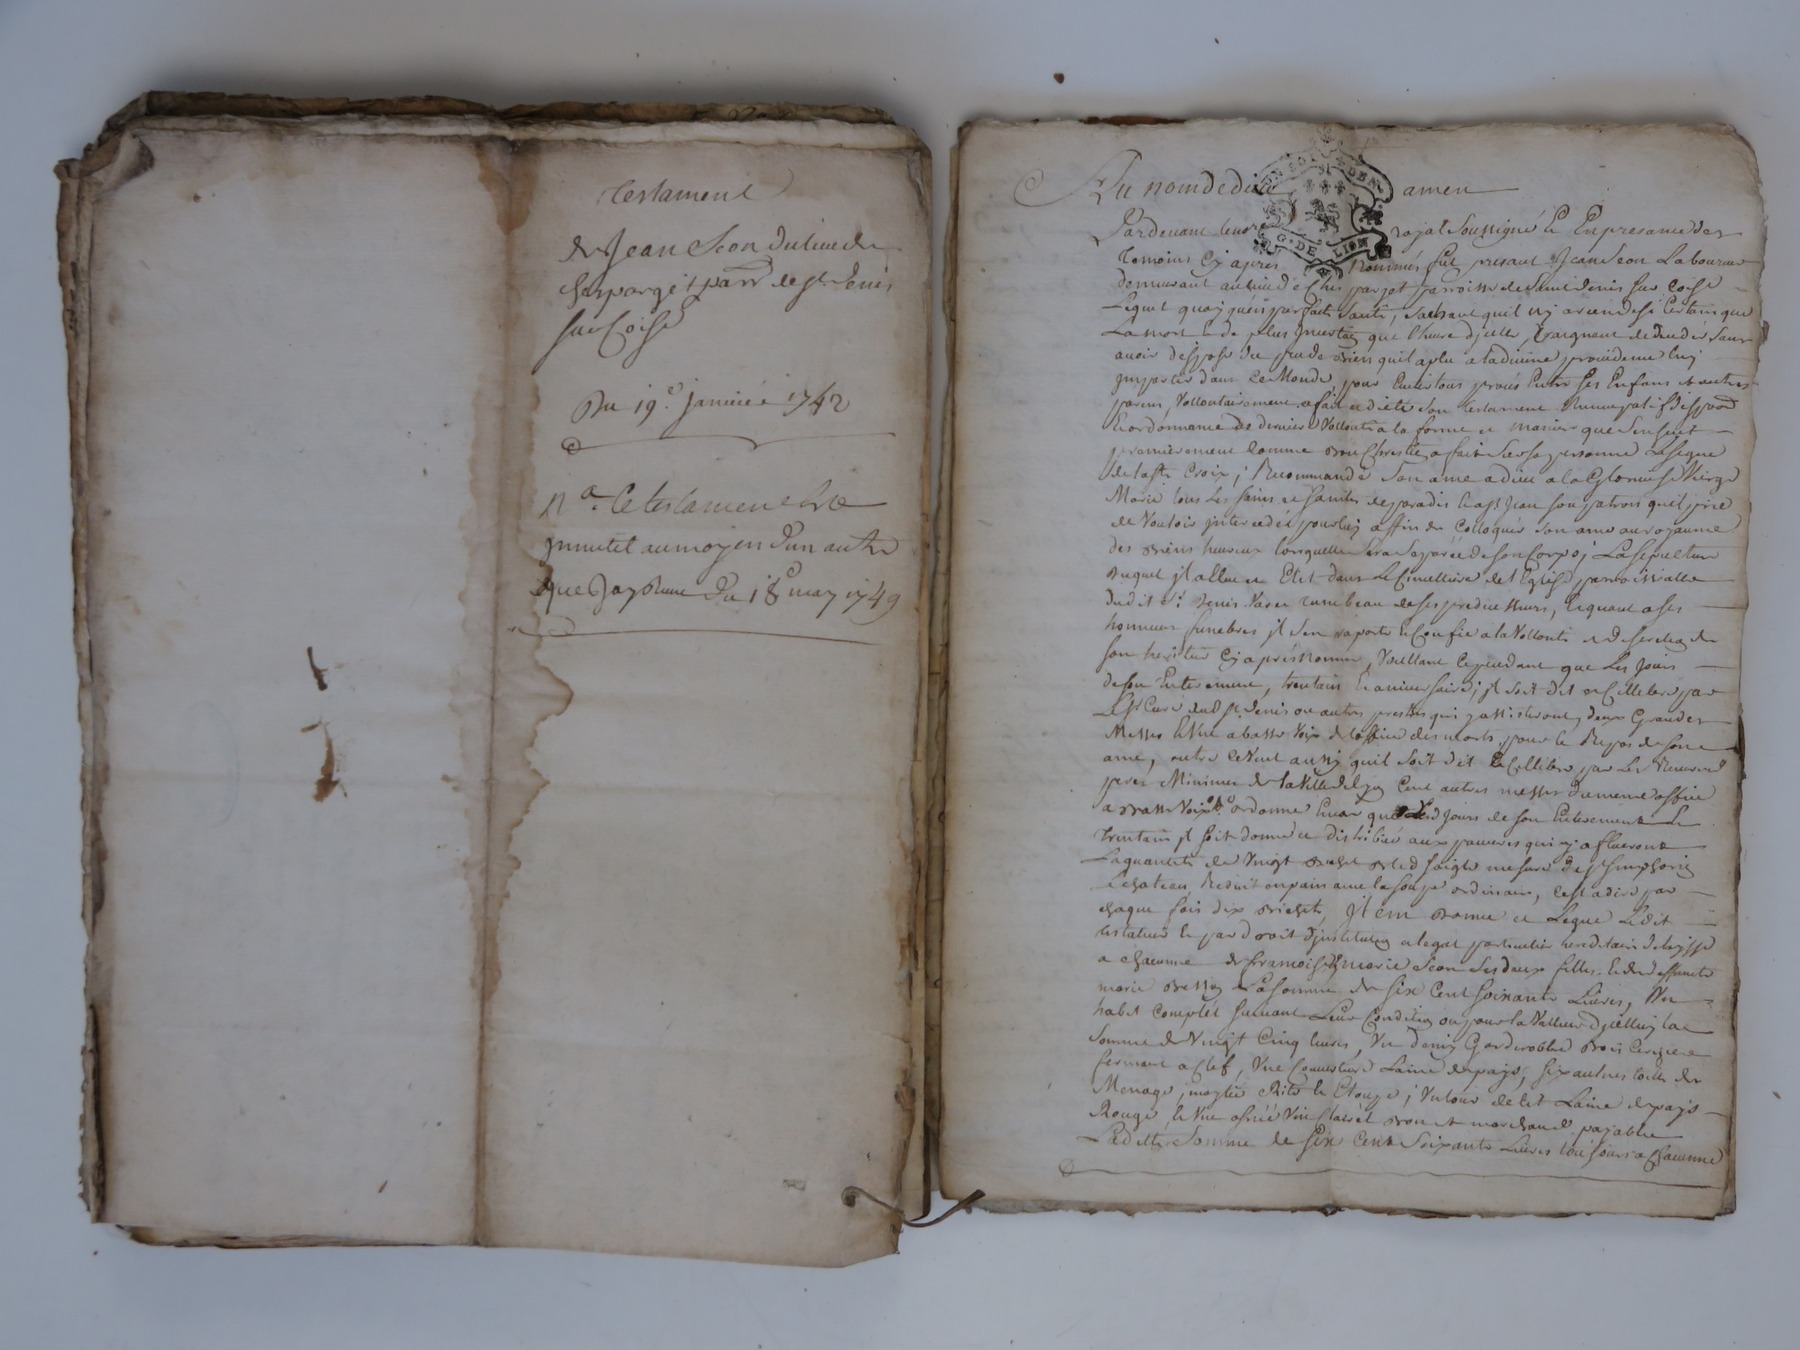 Testament
de Jean Seon du lieu de
Charparget parr de St Denis
sur Coise
Du 19e janvier 1742
Na Ce testament est
inutil au moyen d'un autre
que Jay Reçeu du 18e may 1749
Au nom de dieu amen
Pardevant le no royal soussigné & En presance des
Temoins Cy apres Nommés fut presant Jean Seon Laboureur
demeurant au lieu de parroisse de Saint denis sur Coise
Lequel quoyquen parfaite Santé, Sachant quil ny a rien de si Certain que
La mort & de plus Incertain que l'heure d'jcelle, Craignant de deceder Sans
avoir disposé du peu de Biens quil a plu a la divine providence luy
Impartir dans ce Monde, pour Eviter tous procés Entre ses Enfans et autres
parens, Vollontairement a fait et dicté son testament Nuncupatif disposõn
& ordonnance de derniere Vollonté a la forme et maniere que sensuit
premierement Comme Bon Chrestien a fait sur sa personne Le signe
de la Ste Croix, Recommandé Son ame a dieu a la Glorieuse Vierge
Marie tous Les saints et saintes de paradis & a St Jean son patron quil prie
de Vouloir jnterceder pour luy affin de Colloquer son ame au royaume
des Biens heureux lorsquelle sera Separée de Son Corps, La sepulture
duquel jl a Elue et Elit dans Le Cimettiere de l'Eglise parroissialle
dudit St Denis Vase tumbeau de ses predecesseurs, Et quant a ses
honneurs funebres jl s'en raporte & Confie a la Vollonté et discretion de
son heritier Cy aprés Nommé, Voullant Cependant que Les jours
de son Enterement, trentain & aniversaire, jl soit dit et Cellebré par
Le Sr Curé dud St denis ou autres prestres qui y assisteront, deux Grandes
Messes & Une a basse Voix de l'office des morts, pour le Repos de son
ame, outre ce Veut aussy quil soit dit & Cellebré par Les Reverend
peres Minimes de la Ville de Cent autres messes du meme office
a Basse Voix, ordonne Encor que Lesd jours de son Enterement &
trentain jl soit donné et distribué aux pauvres qui y afflueront
La quantité de Vingt Bichet Bled seigle mesure de St Simphorien
Le Chateau Reduit en pain avec la soupe ordinaire, Cest a dire par
chaque fois dix Bichets, Jtem Donne et Legue Ledit
testateur & par droit d'jnstitution et legat particulier hereditaire delaisse
a chacune de françoise & marie Seon ses deux filles & de deffuncte
marie La somme de six Cent soixante Livres, Un
habit Complet suivant Leur Condition ou pour la Valleur d'jcelluy la
somme de Vingt Cinq livres, Un Garderobbe Bois Cerizier
fermant a Clef, Une Couverture Laine de pays, six autres toilles de
Menage, moytié Rite & Etoupe, Un tour de lit Laine de pays
Rouge, & Une Vin Clairet Bon et marchand, payable
Laditte Somme de six Cent Soixante Livres toujours a chacune